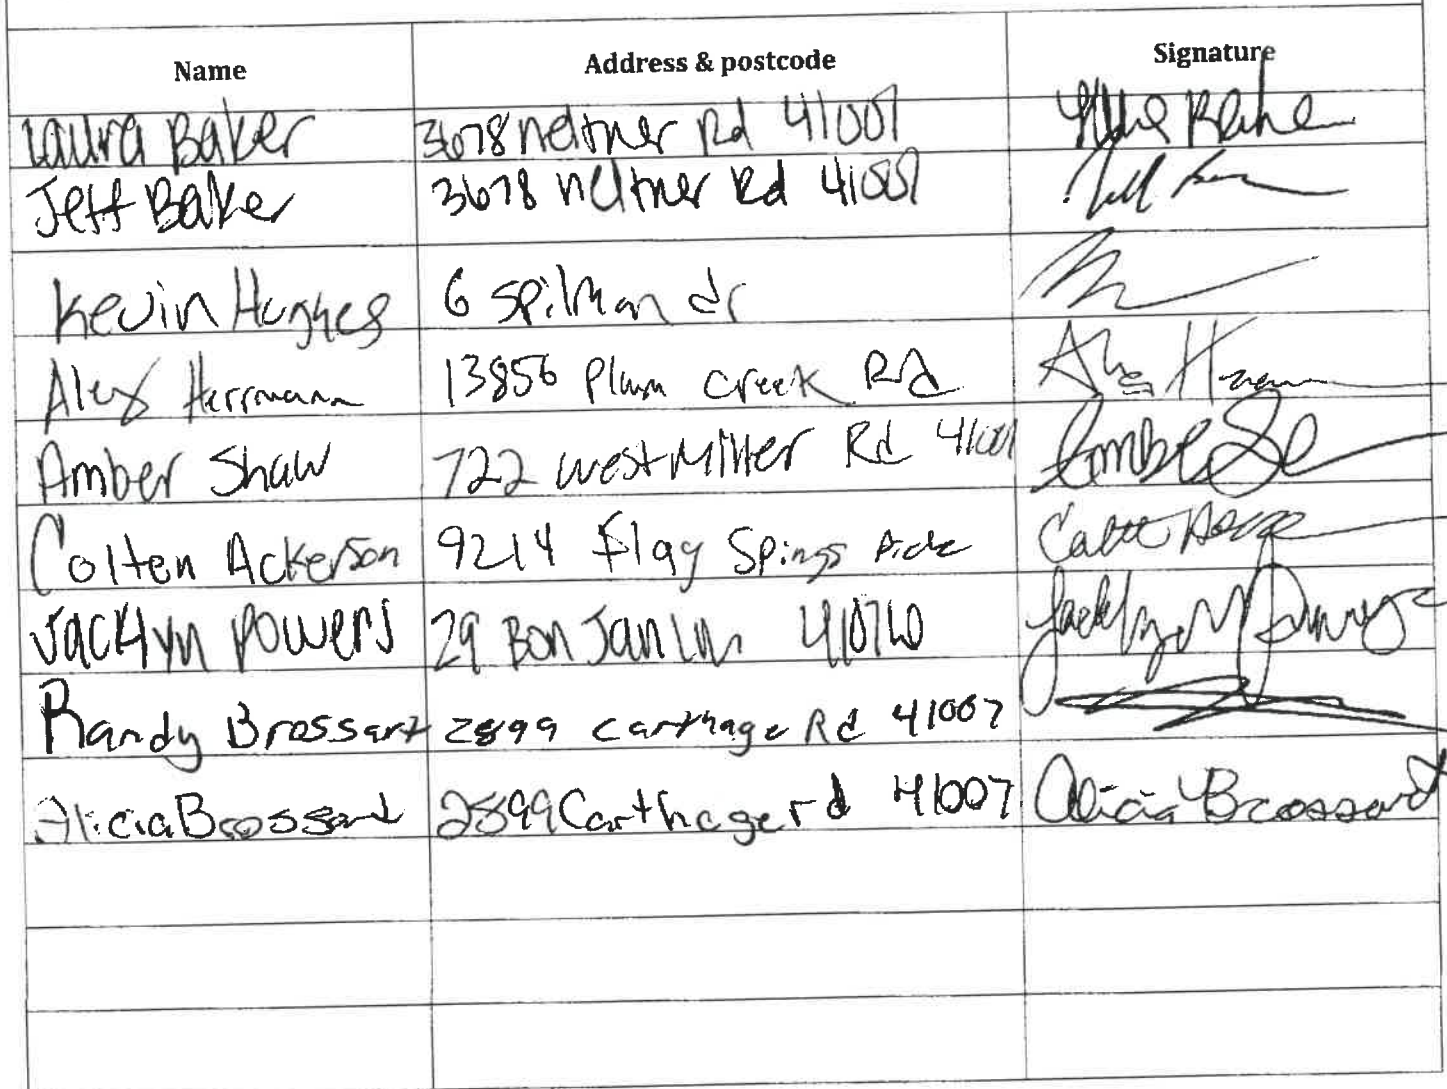 Name Address & postcode Signature
Laura Baker 3678 neltner Rd 41007
Jeff Baker 3678 neltner Rd 41007
Kevin Hughes 6 Spilman dr
Alex Herrmann 13856 Plum creek Rd
Amber Shaw 722 west Miller Rd 41001
Colten Ackerson 9214 Flag Spings Pide
Jacklyn Powers 29 Bon Jan Ln 41076
Randy Brossart 2899 Carthage Rd 41007
Alicia Brossart 2899 Carthage rd 41007 Alicia Brossart